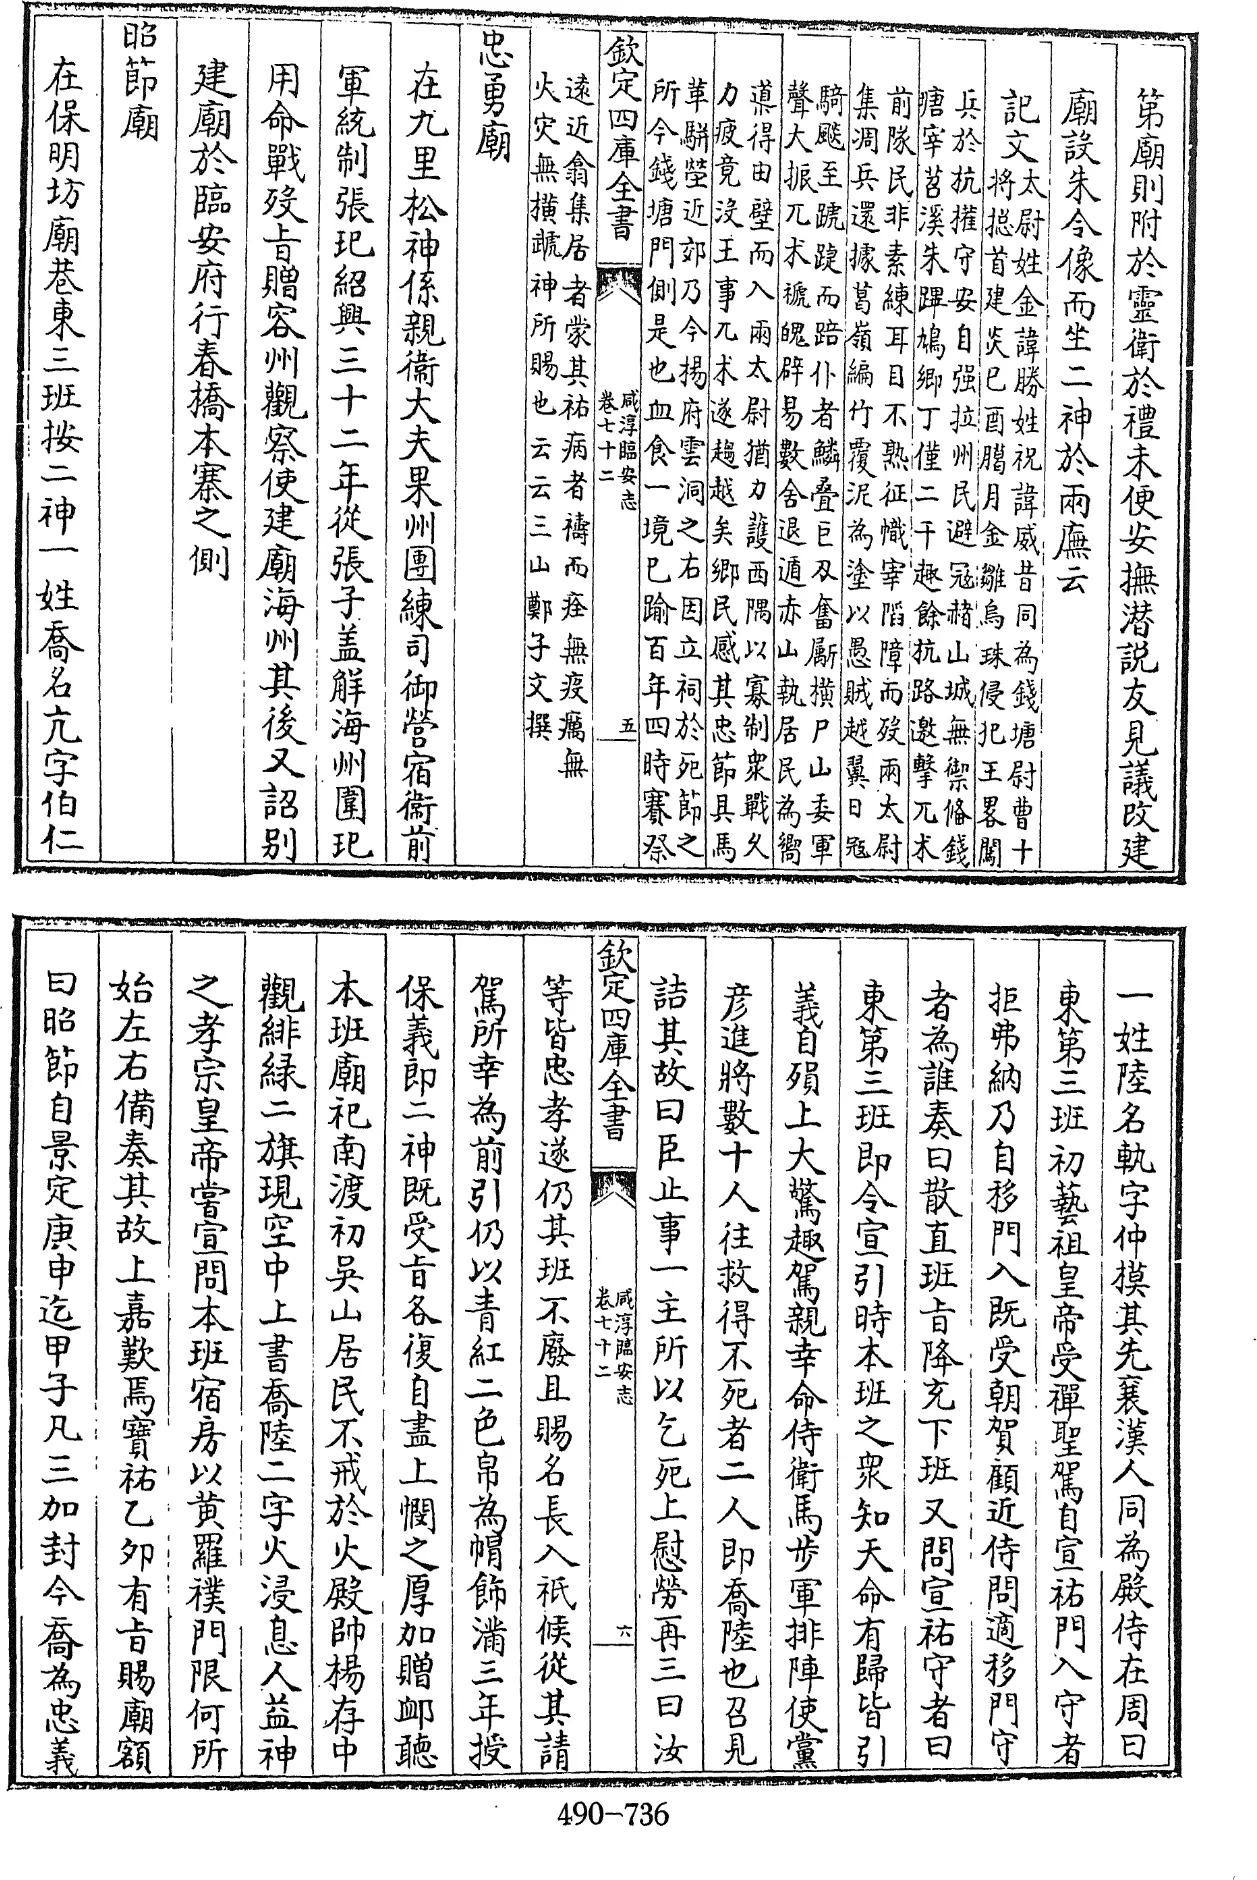 第廟則附於靈衛於禮未便安撫潛說友見議改建
廟設朱令像而坐二神於兩廡云
記文
太尉姓金諱勝姓祝諱威昔同為錢塘尉曹十
將摠首建炎巳酉臘月金雛烏珠侵犯王畧闖
兵於杭擢守安自强拉州民避冦赭山城無禦脩錢
塘宰苕溪朱蹕鳩鄉丁僅二千趣餘杭路邀擊兀朮
前隊民非素練耳目不熟征幟宰陷障而殁兩太尉
集凋兵還據葛嶺編竹覆泥為塗以愚賊越翼日冦
騎颷至踺而踣仆者鱗叠巨刃奮厮橫尸山委軍
聲大振兀朮褫魄辟易數舍退遁赤山執居民為嚮
導得由壁而入兩太尉猶力護西隅以寡制衆戰久
力疲竟没王事兀朮遂趨越矣鄉民感其忠節具馬
革駢塋近郊乃今楊府雲洞之右因立祠於死節之
所今錢塘門側是也血食一境已踰百年四時賽祭
欽定四庫全書
咸淳臨安志
卷七十二
五
遠近翕集居者蒙其祐病者禱而痊無疫癘無
火灾無橫虣神所賜也云云三山鄭子文撰
忠勇廟
在九里松神係親衛大夫果州團練司御營宿衛前
軍統制張玘紹興三十二年從張子盖解海州圍玘
用命戰殁㫖贈容州觀察使建廟海州其後又詔别
建廟於臨安府行春橋本寨之側
昭節廟
在保明坊廟巷東三班按二神一姓喬名亢字伯仁
一姓陸名軌字仲摸其先襄漢人同為殿侍在周曰
東第三班初藝祖皇帝受禪聖駕自宣祐門入守者
拒弗納乃自移門入既受朝賀顧近侍問適移門守
者為誰奏曰散直班㫖降充下班又問宣祐守者曰
東第三班即令宣引時本班之衆知天命有歸皆引
義自殞上大驚趣駕親幸命侍衛馬步軍排陣使黨
彦進將數十人往救得不死者二人即喬陸也召見
詰其故曰臣止事一主所以乞死上慰勞再三曰汝
欽定四庫全書
咸淳臨安志
卷七十二
六
等皆忠孝遂仍其班不廢且賜名長入祇候從其請
駕所幸為前引仍以青紅二色帛為帽飾滿三年授
保義郎二神既受㫖各復自盡上憫之厚加贈卹聽
本班廟祀南渡初吳山居民不戒於火殿帥楊存中
觀緋緑二旗現空中上書喬陸二字火浸息人益神
之孝宗皇帝嘗宣問本班宿房以黄羅襆門限何所
始左右備奏其故上嘉歎焉寶祐乙夘有㫖賜廟額
曰昭節自景定庚申迄甲子凡三加封今喬為忠義
490-736